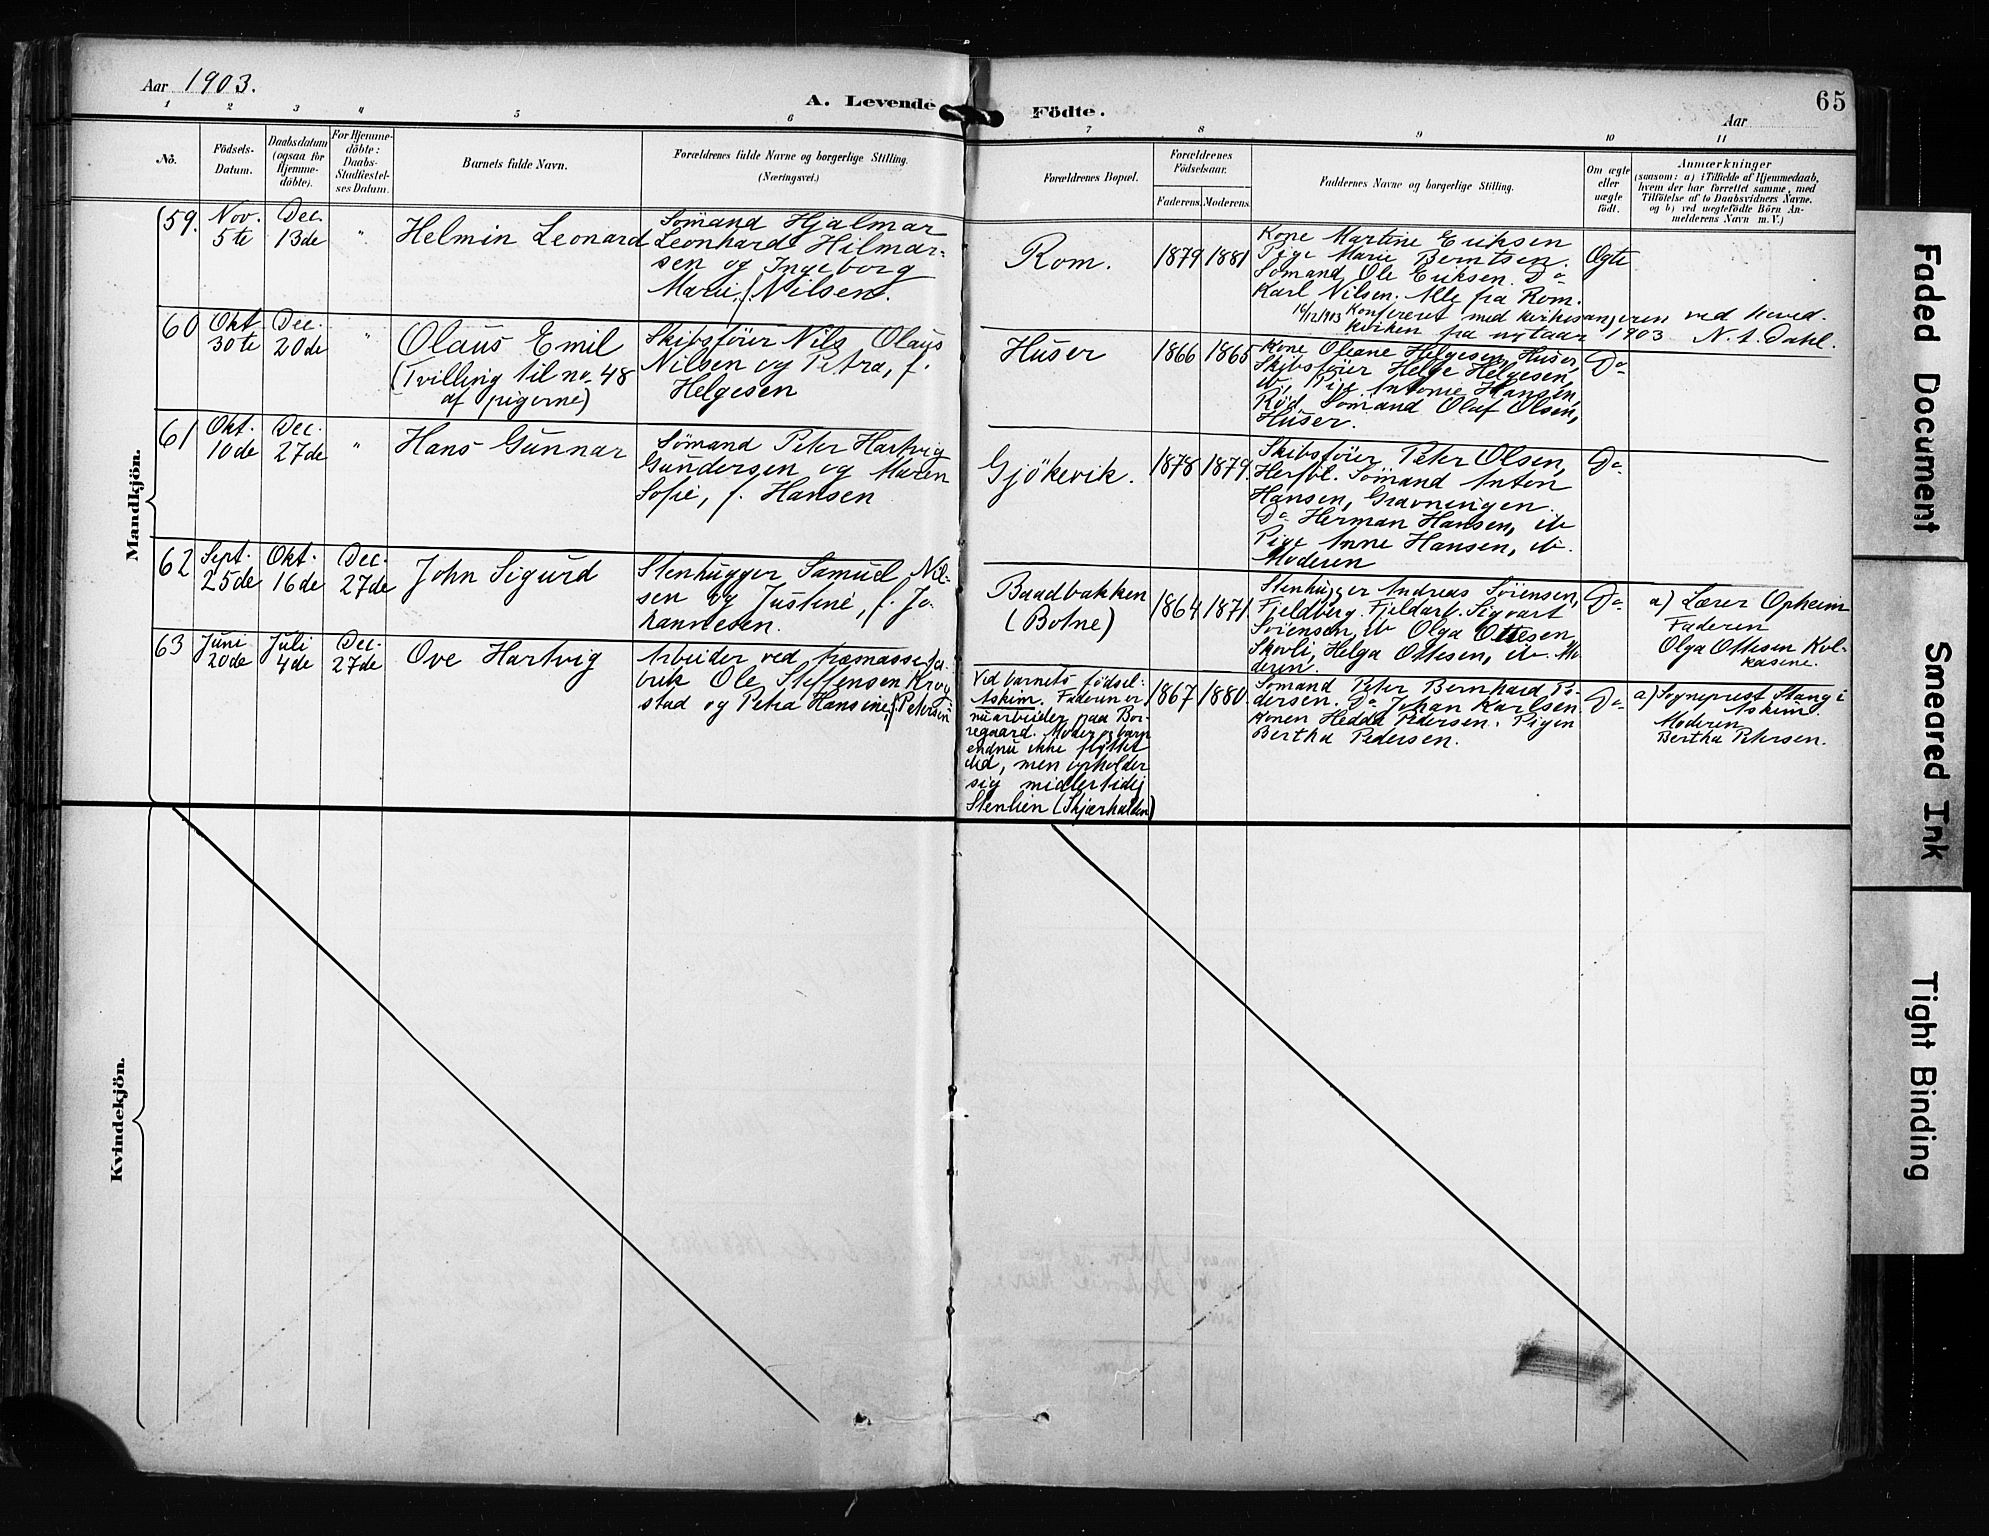 Aar 1903.
A. Levende
Födte.
65
Aar
1 2 3 4 5 6
7 8 9 10 11
No.
Födsels-
Datum.
Daabsdatum
(ogsaa for
Hjemme-
döbte).
For Hjemme-
döbte:
Daabs-
Stadfæstel-
ses Datum.
Barnets fulde Navn.
Forældrenes fulde Navne og borgerlige Stilling.
(Næringsvei.)
Forældrenes Bopæl.
Forældrenes
Födselsaar.
Faderens. Moderens.
Faddernes Navne og borgerlige Stilling.
Om ægte
eller
uægte
født.
Anmærkninger
(saasom: a) i Tilfælde af Hjemmedaab,
hvem der har forrettet samme, med
Tilföielse af to Daabsvidners Navne.
og b) ved uægtefödte Börn An-
melderens Navn m. V.)
Mandkjön.
59.
Nov.
5te
Dec.
13de
"
Helmin Leonard
Sömand Hjalmar
Leonhard Hilmar-
sen og Ingeborg
Marie, f. Nilsen.
Rom.
1879 1881
Kone Martine Eriksen
Pige Marie Berntsen.
Sömand Ole Eriksen. Do
Karl Nilsen. Alle fra Rom.
Ægte
16/12/1903 Konfereret med kirkesangeren ved hoved-
kirken fra nytaar 1903 N. A. Dahl.
60
Okt.
30te
Dec.
20de
"
Olaus Emil
(Tvilling til no. 48
af pigerne)
Skibsförer Nils Olaus
Nilsen og Petra, f.
Helgesen
Huser
1866 1865
Kone Oleane Helgesen, Huser,
Skibsförer Helge Helgesen,
ib, Pige Antonie Hansen,
Röd. Sömand Oluf Olsen,
Huser.
Do
61
Okt.
10de
Dec.
27de
"
Hans Gunnar
Sömand Peter Hartvig
Gundersen og Maren
Sofie, f. Hansen
Gjökevik.
1878 1879.
Skibsförer Peter Olsen,
Herföl. Sömand Anton
Hansen, Gravningen.
Do Herman Hansen, ib
Pige Anne Hansen, ib.
Moderen
Do
62
Sept.
25de
Okt.
16de
Dec.
27de
John Sigurd
Stenhugger Samuel Nil-
sen og Justine, f. Jo-
hannesen.
Baadbakken
(Botne)
1864 1871.
Stenhugger Andreas Sörensen,
Fjeldberg. Fjeldarb. Sigvart
Sörensen, ib Olga Ottesen,
Skovli, Helga Ottesen, ib. Mo-
deren.
Do
a) Lærer Opheim
Faderen
Olga Ottesen Kol-
kasine.
63
Juni
20de
Juli
4de
Dec.
27de
Ove Hartvig
Arbeider ved træmassefa-
brik Ole Steffensen Krog
stad og Petra Hansine, f. Petersen
Ved barnets födsel:
Askim. Faderen er
nu arbeider paa Bor-
regaard. Moder og barn
endnu ikke flyttet
did, men opholder
sig midlertidig
Stenlien (Skjærhalden)
1867 1880.
Sömand Peter Bernhard Pe-
dersen. Do Johan Karlsen.
Konen Hedda Pedersen. Pigen
Bertha Pedersen.
Do
a) Sogneprest Stang i
Askim.
Moderen
Bertha Petersen.
Kvindekjön.
Faded Document
Smeared Ink
Tight Binding